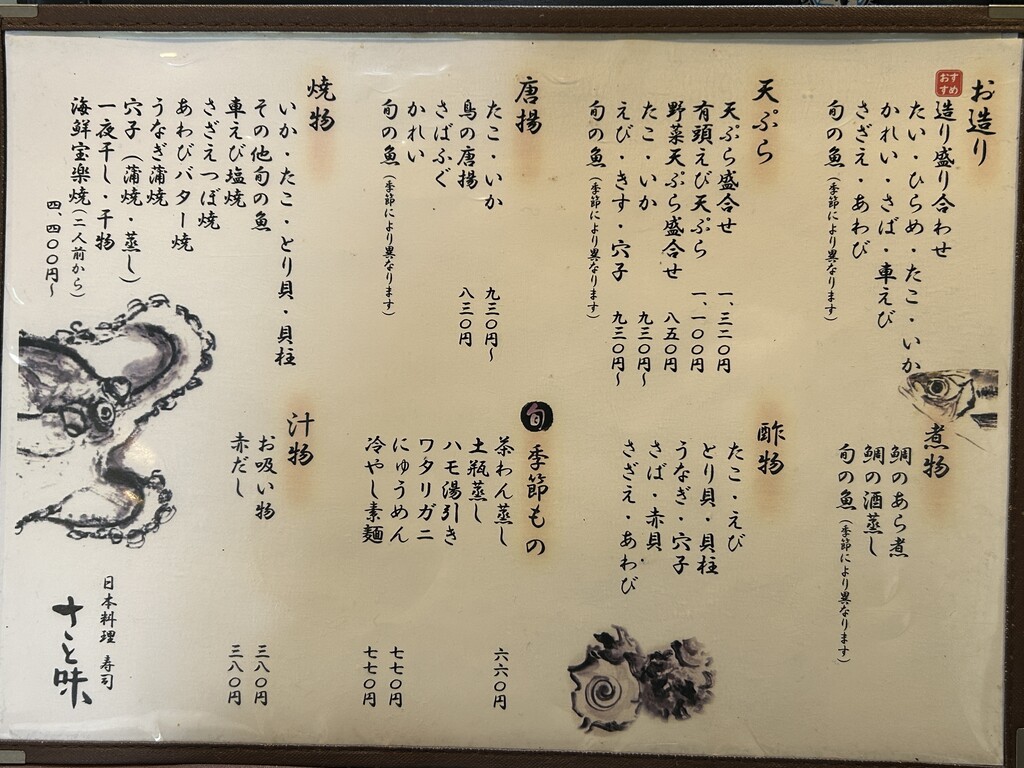 お造り
おすすめ
造り盛り合わせ
たい・ひらめ・たこ・いか
かれい・さば・車えび
さざえ・あわび
旬の魚（季節により異なります）
煮物
鯛のあら煮
鯛の酒蒸し
旬の魚（季節により異なります）
天ぷら
天ぷら盛合せ 一、三二〇円
有頭えび天ぷら 一、一〇〇円
野菜天ぷら盛合せ 八五〇円
たこ・いか 九三〇円〜
えび・きす・穴子 九三〇円〜
旬の魚（季節により異なります）
酢物
たこ・えび
とり貝・貝柱
うなぎ・穴子
さば・赤貝
さざえ・あわび
唐揚
たこ・いか 九三〇円〜
鳥の唐揚 八三〇円
さばふぐ
かれい
旬の魚（季節により異なります）
旬 季節もの
茶わん蒸し 六六〇円
土瓶蒸し
ハモ湯引き
ワタリガニ
にゅうめん 七七〇円
冷やし素麺 七七〇円
焼物
いか・たこ・とり貝・貝柱
その他旬の魚
車えび塩焼
さざえつぼ焼
あわびバター焼
うなぎ蒲焼
穴子（蒲焼・蒸し）
一夜干し・干物
海鮮宝楽焼（二人前から）
四、四〇〇円〜
汁物
お吸い物 三八〇円
赤だし 三八〇円
日本料理 寿司
さと味